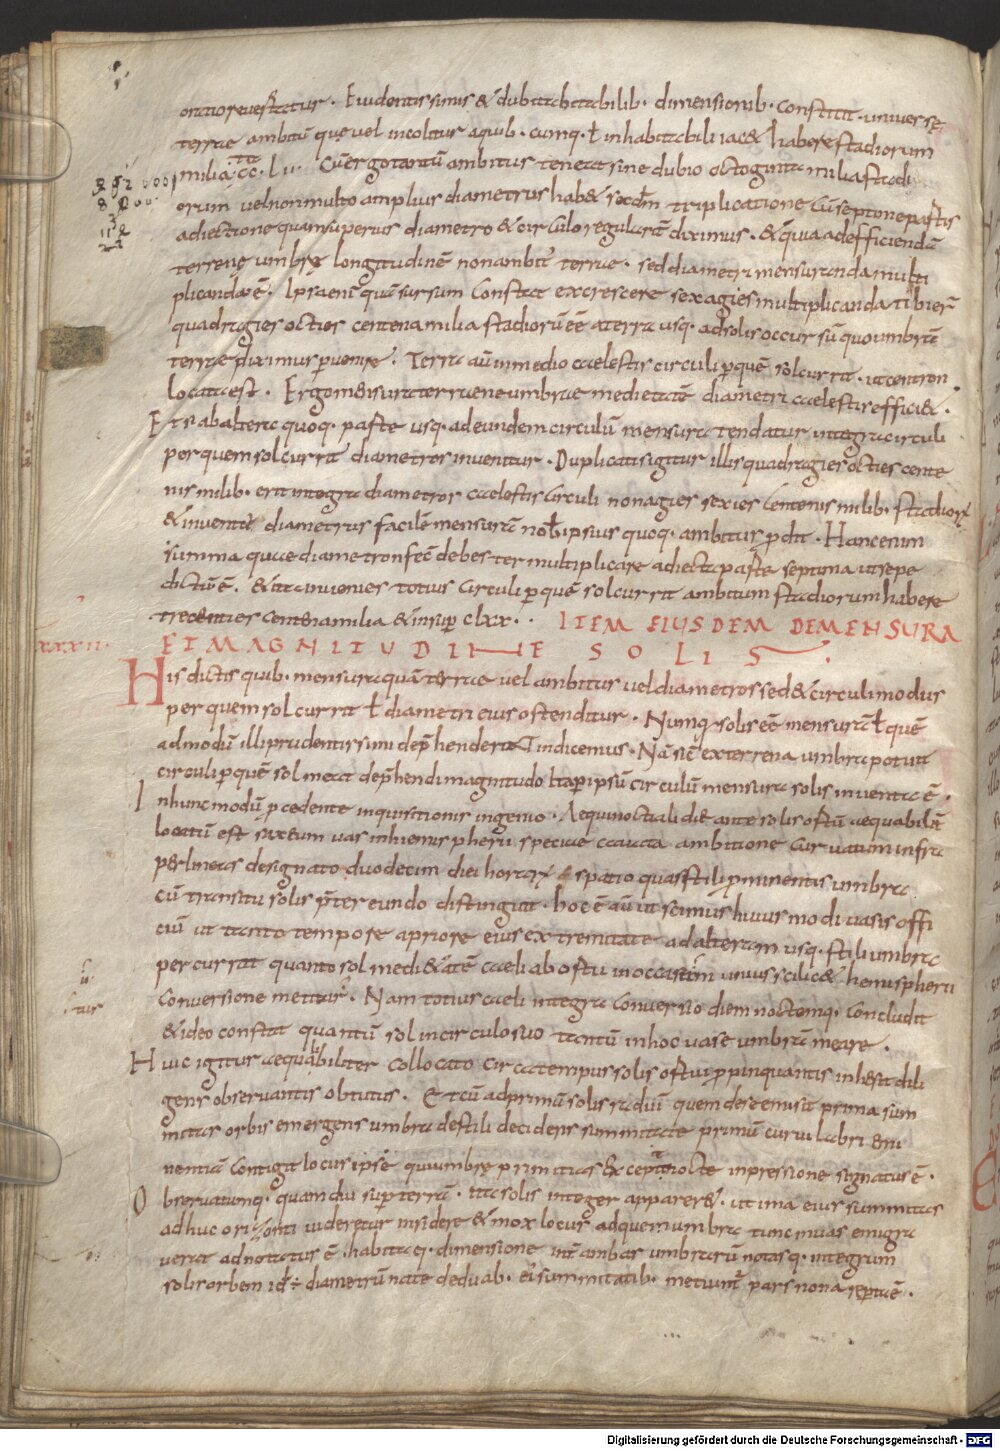 oratio revertatur. Evidentissimis & dubitabitabilib. dimensionib. constitit. universę
terrae ambitū que vel incolitur aquib. cumq. ł inhabitabili iac& habere stadiorum
milia. cc. l. ii. Cū ergo tantū ambitus teneat sine dubio octoginta milia stadi
orum vel non multo amplius diametrus hab& scdm triplicatione cū septime partis
adiectione quam superius diametro & circulo regularē diximus. & quia ad efficiendā
terrenę umbrę longitudinē non ambitˀ terrae. sed diametri mensuranda multi
plicanda ē. Ipsa enī quā sursum constat excrescere sexagies multiplicanda tibi er
quadragies octies centena milia stadiorū eē a terra usq. ad solis occursū quo umbrā
terrae diximus pvenire. Terra aū in medio caelestis circuli p quē sol currit. ut centron
locata est. Ergo mensura terrene umbrae medietatē diametri caelestis effici&.
Et si ab altera quoq. parte usq. ad eundem circulū mensura tendatur integra circuli
per quem sol currit diametros invenitur. Duplicatis igitur illis quadragies octies cente
nis milib. erit integra diametros caelestis circuli nonagies sexies centenis milib. stadiorꝝ
& inventˀ diametrus facile mensurā nob ipsius quoq. ambitus pdit. Hanc enim
summa quae diametron fec debes ter multiplicare adiecta parte septima ut sepe
dictū ē. & ita invenies totus circuli p quē sol currit ambitum stadiorum habere
trecenties centena milia & insup clxx.. ITEM EIUSDEM DEMENSURA
xxxii. ET MAGNITUDINE SOLIS.
His dictis quib. mensura quā terrae vel ambitus vel diametros sed & circuli modus
per quem sol currit ł diametri eius ostenditur. Nunc q solis eē mensurā ł quē
admodū illi prudentissimi dep̄henderit indicemus. Nā sic ex terrena umbra potuit
circuli p quē sol meat dep̄hendi magnitudo ita p ipsū circulū mensura solis inventa ē.
In hunc modū pcedente inquisitionis ingenio. Aequinoctiali die ante solis ortū aequabilit
locatū est saxeum vas in hemispherii speciae cavata ambitione curvatum infra
per lineas designato duodecim diei horarꝝ spatio quas stili pminentis umbra
cū transitu solis p̄tereundo distinguit. hoc ē aū ut scimus huius modi vasis offi
ciū ut tanto tempore a priore eius extremitate ad alteram usq. stili umbra
percurrat quanto sol medi&atē caeli ab ortu in occasum unius scilic& hemispherii
conversione metitur. Nam totius caeli integra conversio diem noctemq. concludit
& ideo constat quantū sol in circulo suo tantū in hoc vase umbrā meare.
Huic igitur aequabiliter collocato circa tempus solis ortui ppinquantis inhesit dili
gens observantis obtutus. Et cū ad primū solis radiū quem de se emisit prima sum
mitas orbis emergens umbra de stili decidens summitate primū curvi labri emi
nentiā contigit locus ipse qui umbrę primitias excepit nota inpressione signatus ē.
Observatumq. quam diu sup terrā. ita solis integer apparer&. ut ima eius summitas
adhuc orizonti videretur insidere & mox locus ad quem umbra tunc in vas emigra
verat adnotatus ē. habitaq. dimensione int ambas umbrarū notasq. integrum
solis orbem id ÷ diametrū nate de duab. eiˀ summitatib. metiunt pars nona repta ē.